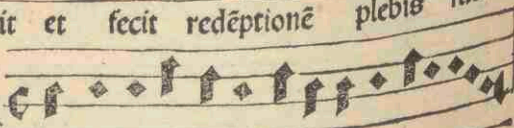 it et fecit redēptionē plebis